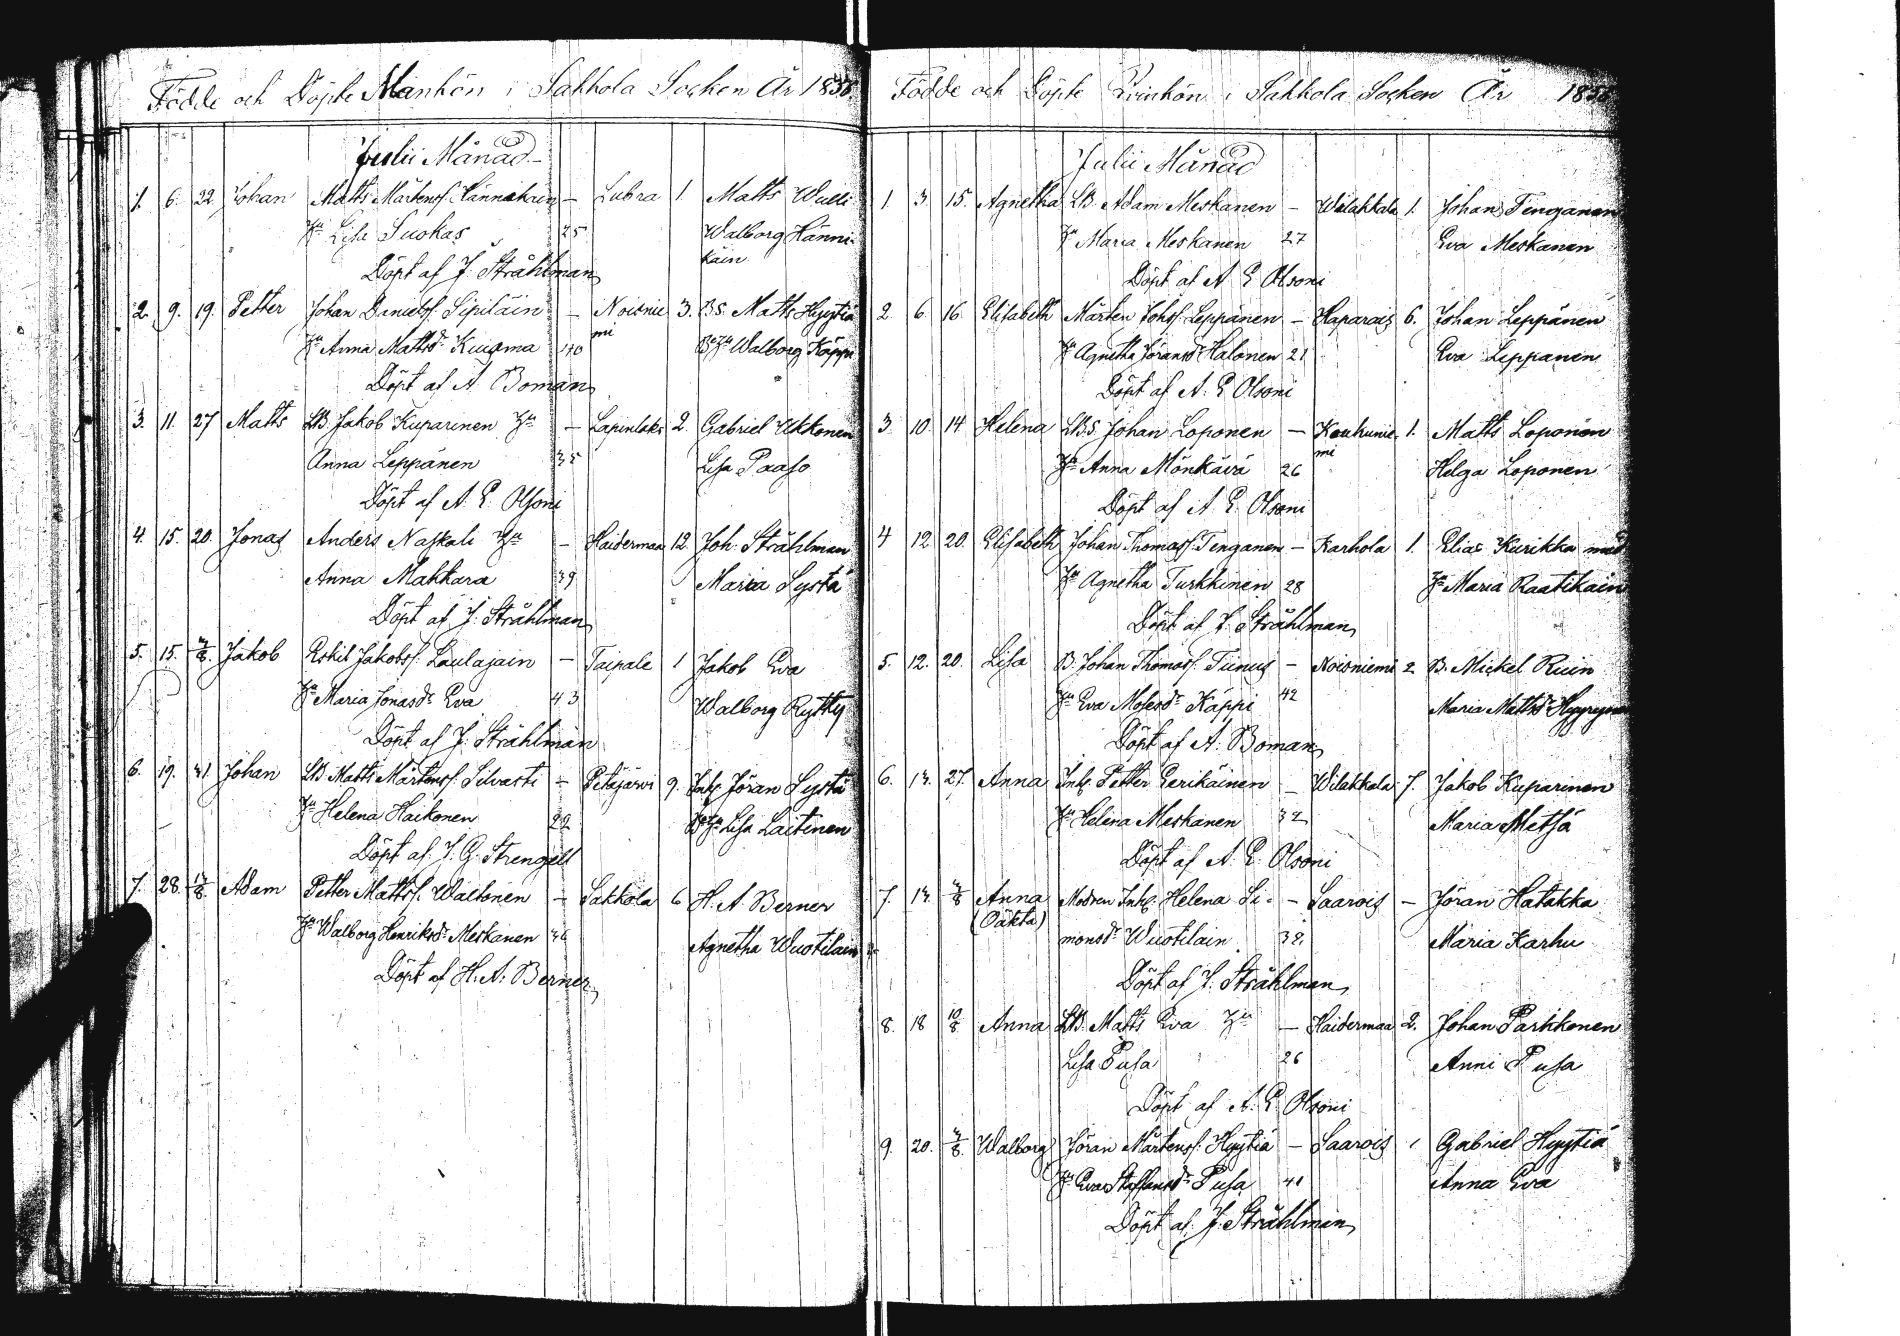 Födde och Döpte Mankön i Sakkola Socken År 1838
Julii Månad
1. 6. 22 Johan Matts Mårtenss. Hännikäin – Lubra 1. Matts Wulli
Hu Lisa Suokas 25 Walborg Hänni-
käin
Döpt af J. Stråhlman
2. 9. 19. Petter Johan Danielss. Sipiläin – Noisnie 3. Bs. Matts Hyytiä
mi
Hu Anna Mattsdr Kuisma 40 BeHu Walborg Käppi
Döpt af A. Boman
3. 11. 27 Matts LB. Jakob Kuparinen Hu – Lapinlaks 2. Gabriel Ukkonen
Anna Leppänen 35 Lisa Paaso
Döpt af A. E. Olsoni
4. 15. 20. Jonas Anders Naskali Hu – Haidermaa 12 Joh. Stråhlman
Anna Makkara 39 Maria Systä
Döpt af J. Stråhlman
5. 15. Jakob Eskil Jakobss. Laulajain – Taipale 1 Jakob Eva
Hu Maria Jonasdr Eva 43 Walborg Rythy
Döpt af J. Stråhlman
6. 19. 31. Johan LB Matts Mårtenss. Silvasti – Petäjärvi 9. Inh. Jöran Systä
Hu Helena Haikonen 22 BeHu Lisa Laitinen
Döpt af J. G. Strengell
7. 28. Adam Petter Mattss. Waltonen – Sakkola 6 H. A. Berner
Hu Walborg Henriksdr Meskanen 36 Agnetha Wuotilain
Döpt af H. A. Berner
Födde och Döpte Qvinkön i Sakkola Socken År 1838
Julii Månad
1. 3. 15. Agnetha LB. Adam Meskanen – Wilakkala 1. Johan Tenganen
Hu Maria Meskanen 27 Eva Meskanen
Döpt af A E Olsoni
2. 6. 16. Elisabeth Mårten Johss. Leppänen – Haparais 6. Johan Leppänen
Hu Agnetha Jöransdr Halonen 21 Eva Leppänen
Döpt af A. E Olsoni
3. 10. 14 Helena LBs Johan Loponen – Koukunie- 1. Matts Loponen
mi
Hu Anna Mönkävä 26 Helga Loponen
Döpt af A. E. Olsoni
4 12 20. Elisabeth Johan Thomass. Tenganen – Karhola 1. Elias Kurikka med
Hu Agnetha Turkkinen 28 Hu Maria Raatikain
Döpt af J. Stråhlman
5. 12. 20. Lisa B. Johan Thomass. Tiinus – Noisniemi 2 B. Mickel Ruin
Hu Eva Mosesdr Käppi 42 Maria Mattsdr
Döpt af A. Boman
6. 14. 27. Anna Inh. Petter Gerikäinen – Wilakkala 7. Jakob Kuparinen
Hu Helena Meskanen 32 Maria Metsä
Döpt af A. E. Olsoni
7. 14. Anna Modren Inh. Helena Si- – Saarois – Jöran Hatakka
(Oäkta)
monsdr Wuotilain 32. Maria Karhu
Döpt af J. Stråhlman
8. 18 10/8 Anna LB. Matts Eva Hu – Haidermaa 2. Johan Parkkonen
Lisa Pusa 26 Anni Pusa
Döpt af A. E. Olsoni
9. 20. Walborg Jöran Mårtenss. Hyytiä – Saarois 1 Gabriel Hyytiä
Hu Eva Staffansdr Pusa 41 Anna Eva
Döpt af J. Stråhlman